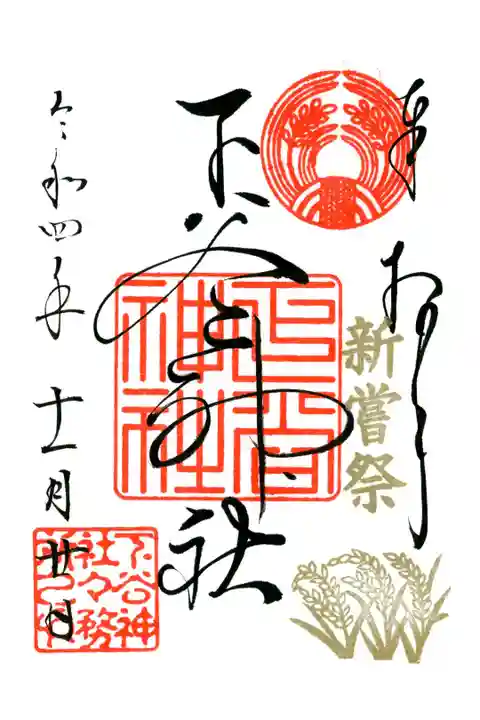 奉拝
新嘗祭
下谷神社
下谷神社
令和四年十一月廿日
下谷神
社々務